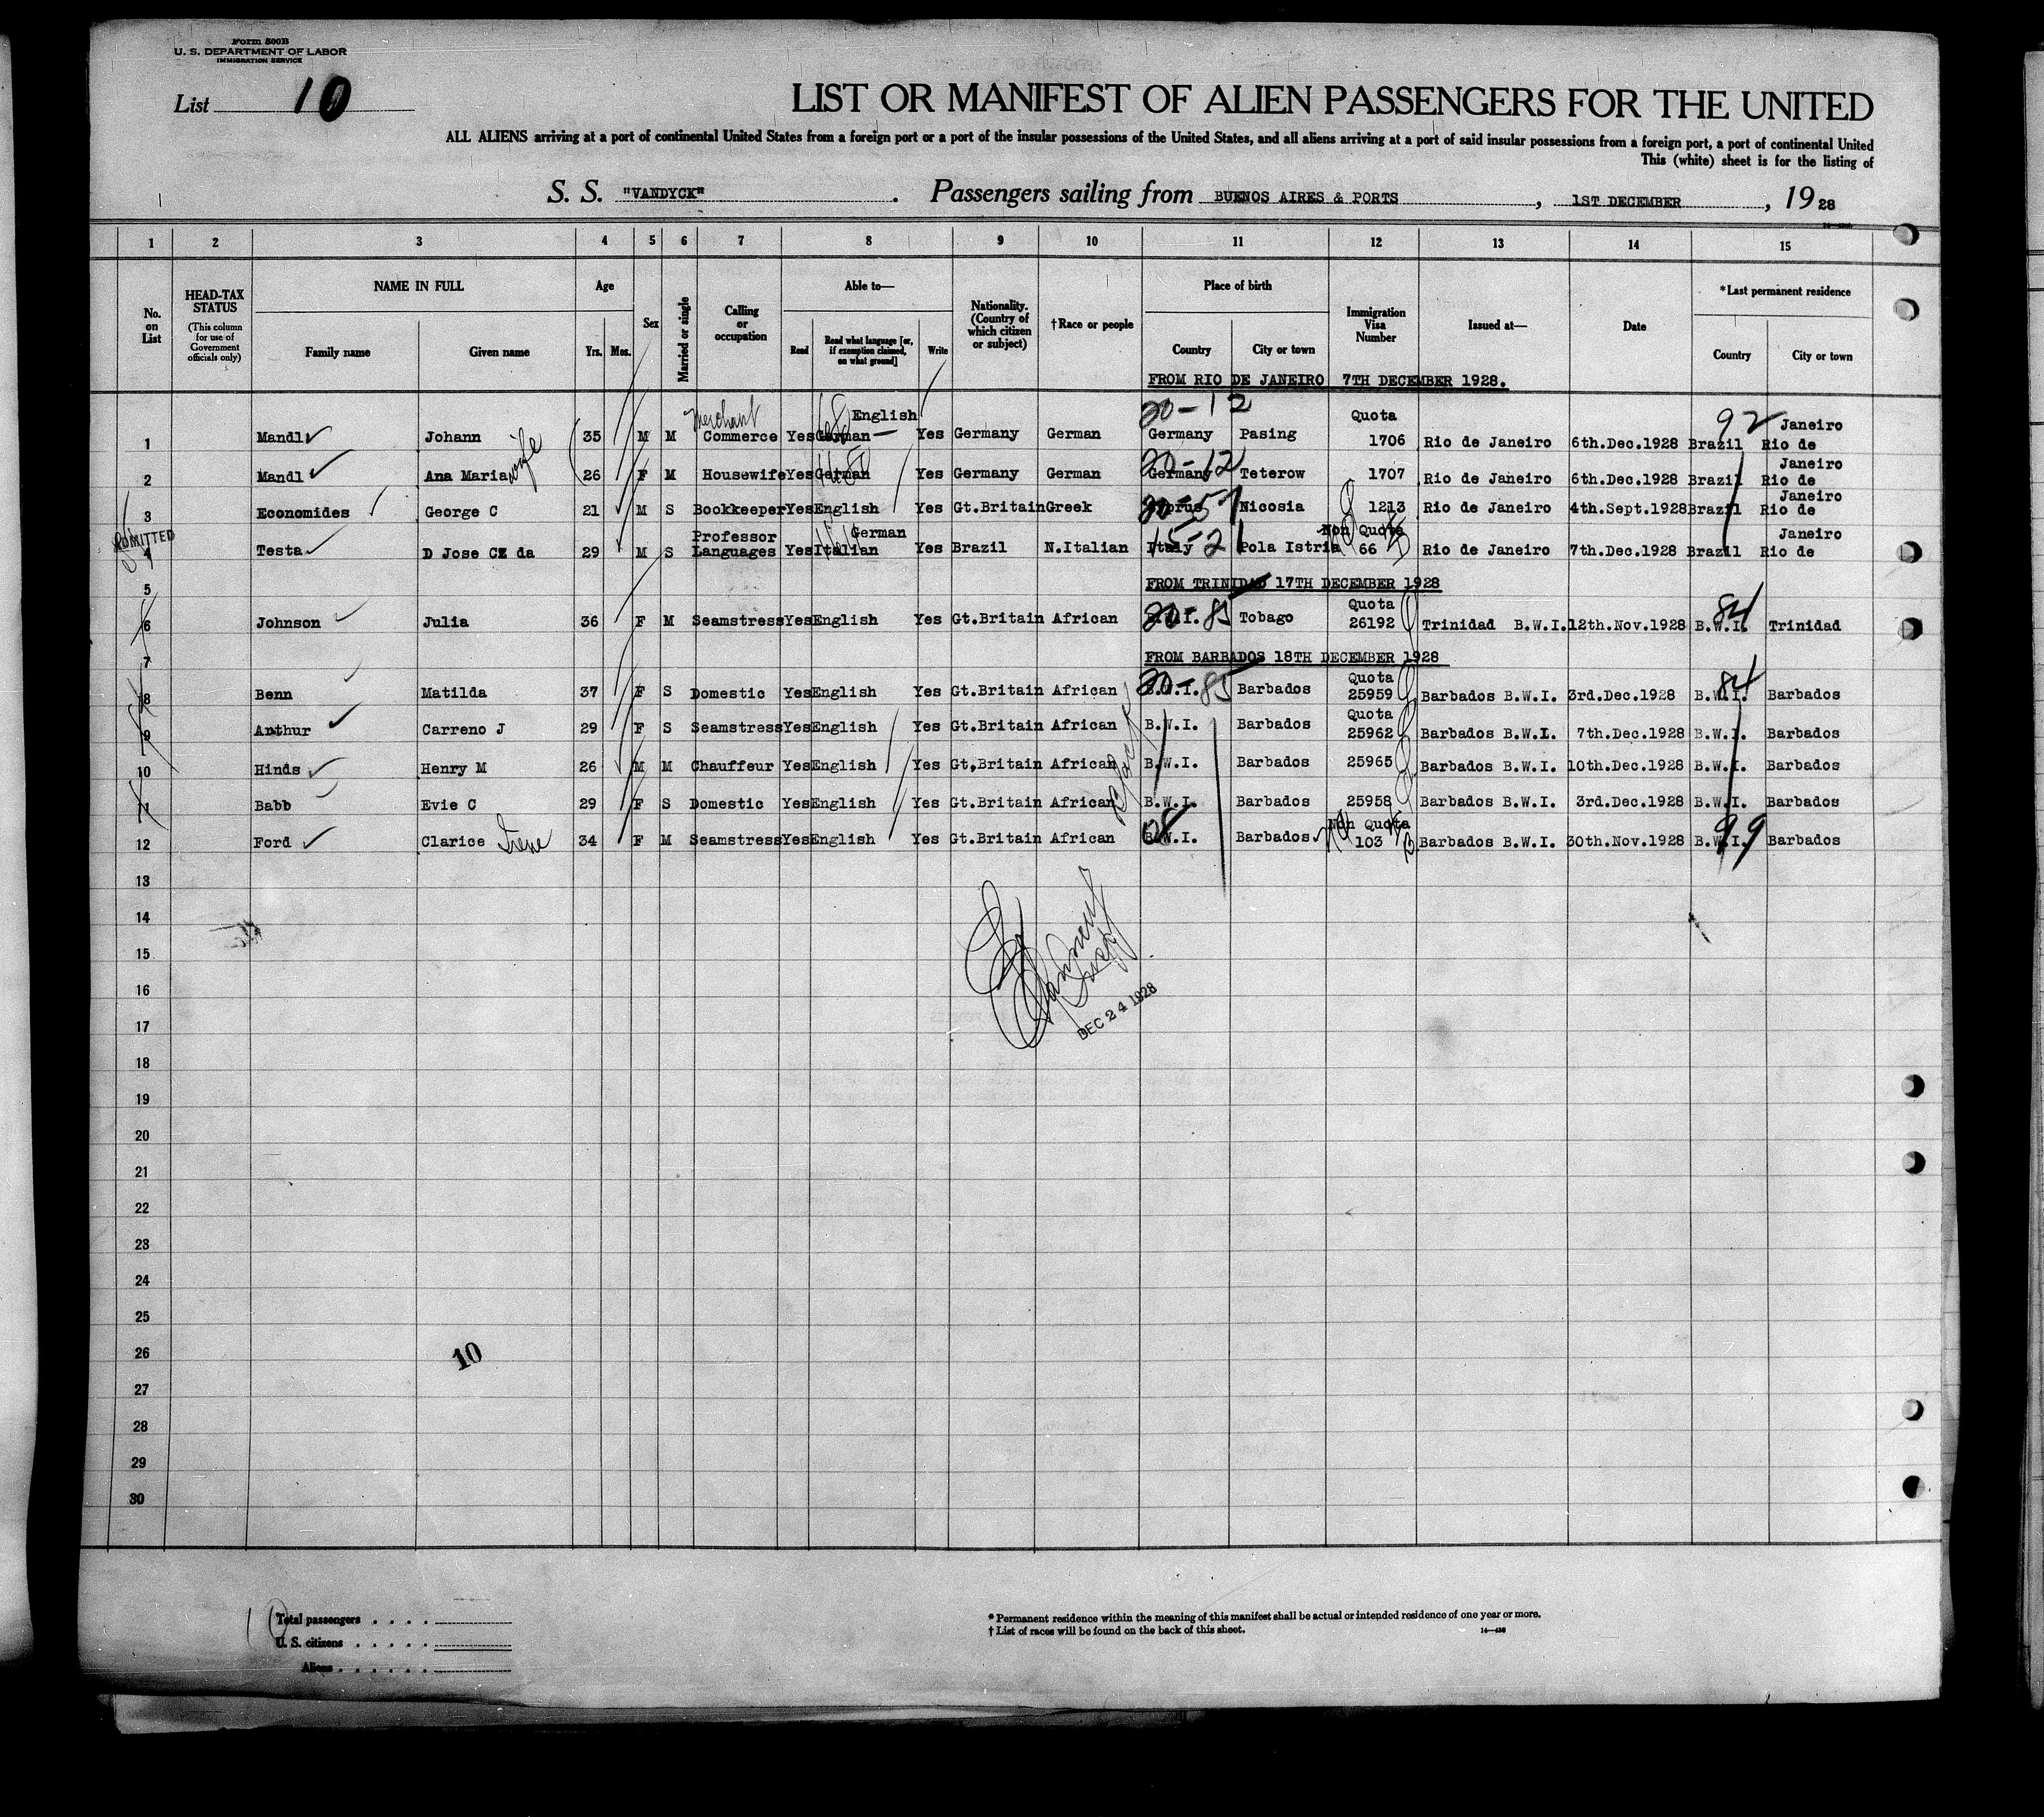 Form 500B
U. S. DEPARTMENT OF LABOR
IMMIGRATION SERVICE
List 10
LIST OR MANIFEST OF ALIEN PASSENGERS FOR THE UNITED
ALL ALIENS arriving at a port of continental United States from a foreign port or a port of the insular possessions of the United States, and all aliens arriving at a port of said insular possessions from a foreign port, a port of continental United
This (white) sheet is for the listing of
S. S. "VANDYCK". Passengers sailing from BUENOS AIRES & PORTS, 1ST DECEMBER, 1928
1 2 3 4 5 6 7 8 9 10 11 12 13 14 15
No. on List
HEAD-TAX STATUS
(This column for use of Government officials only)
NAME IN FULL
Family name Given name
Age
Yrs. Mos.
Sex
Married or single
Calling or occupation
Able to—
Read Read what language [or, if exemption claimed, on what ground] Write
Nationality. (Country of which citizen or subject)
†Race or people
Place of birth
Country City or town
Immigration Visa Number
Issued at—
Date
*Last permanent residence
Country City or town
FROM RIO DE JANEIRO 7TH DECEMBER 1928.
merchant English 20-12 Quota 92 Janeiro
1 Mandl Johann 35 M M Commerce Yes German Yes Germany German Germany Pasing 1706 Rio de Janeiro 6th.Dec.1928 Brazil Rio de
wife 20-12 Janeiro
2 Mandl Ana Maria 26 F M Housewife Yes German Yes Germany German Germany Teterow 1707 Rio de Janeiro 6th.Dec.1928 Brazil Rio de
Janeiro
3 Economides George C 21 M S Bookkeeper Yes English Yes Gt.Britain Greek Cyprus Nicosia 1213 Rio de Janeiro 4th.Sept.1928 Brazil Rio de
ADMITTED Professor German 15-21 Non Quota Janeiro
4 Testa D Jose CZ da 29 M S Languages Yes Italian Yes Brazil N.Italian Italy Pola Istria 66 Rio de Janeiro 7th.Dec.1928 Brazil Rio de
5 FROM TRINIDAD 17TH DECEMBER 1928
20-85 Quota 84
6 Johnson Julia 36 F M Seamstress Yes English Yes Gt.Britain African B.W.I. Tobago 26192 Trinidad B.W.I. 12th.Nov.1928 B.W.I. Trinidad
7 FROM BARBADOS 18TH DECEMBER 1928
20-85 Quota 84
8 Benn Matilda 37 F S Domestic Yes English Yes Gt.Britain African B.W.I. Barbados 25959 Barbados B.W.I. 3rd.Dec.1928 B.W.I. Barbados
Quota
9 Arthur Carreno J 29 F S Seamstress Yes English Yes Gt.Britain African B.W.I. Barbados 25962 Barbados B.W.I. 7th.Dec.1928 B.W.I. Barbados
10 Hinds Henry M 26 M M Chauffeur Yes English Yes Gt.Britain African B.W.I. Barbados 25965 Barbados B.W.I. 10th.Dec.1928 B.W.I. Barbados
black
11 Babb Evie C 29 F S Domestic Yes English Yes Gt.Britain African B.W.I. Barbados 25958 Barbados B.W.I. 3rd.Dec.1928 B.W.I. Barbados
08 Non Quota 99
12 Ford Clarice Irene 34 F M Seamstress Yes English Yes Gt.Britain African B.W.I. Barbados 103 Barbados B.W.I. 30th.Nov.1928 B.W.I. Barbados
13
14
15
16
DEC 24 1928
17
18
19
20
21
22
23
24
25
26
10
27
28
29
30
Total passengers
U. S. citizens
Aliens
* Permanent residence within the meaning of this manifest shall be actual or intended residence of one year or more.
† List of races will be found on the back of this sheet.